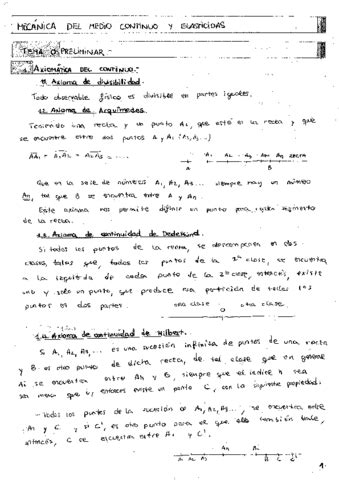 MECÁNICA DEL MEDIO CONTINUO Y ELASTICIDAD
TEMA 0: PRELIMINAR.-
AXIOMÁTICA DEL CONTINUO.-
Axioma de divisibilidad.
Todo observable físico es divisible en partes iguales.
1.2. Axioma de Arquímedes.
Teniendo una recta y un punto A₁, que esté en la recta y que
se encuentre entre dos puntos A y A₁ (A₁, A₂,...)
AA₁ = A₁A₂ = A₂A₃ = ....
A A₁ A₂ A₃ Aₙ B
Que en la serie de números A₁, A₂, A₃... siempre hay un número
Aₙ, tal que B se encuentra entre A y Aₙ.
Este axioma nos permite definir un punto para segmento
de la recta.
1.3. Axioma de continuidad de Dedekind.
Si todos los puntos de la recta, se descomponen en dos
clases, tales que, todos los puntos de la clase, se encuentra
a la izquierda de cada punto de la 2ª clase, entonces, existe
uno y solo un punto, que produce esa partición de todos los
puntos en dos partes.
una clase 0 otra clase.
1.4. Axioma de continuidad de Hilbert.
Si A₁, A₂, A₃, ... es una sucesión infinita de puntos de una recta
y B es otro punto de dicha recta, de tal clase que en general
Ai se encuentra entre y B, siempre que el índice h sea
menor que i, entonces existe un punto C, con la siguiente propiedad.
- Todos los puntos de la sucesión A₁, A₂, A₃, ..., se encuentra entre
A₁ y C. y si C', es otro punto para el que también vale,
entonces, C se encuentra entre A₁ y C'.
A₁ A₂ A₃ Aₙ B C C'
1